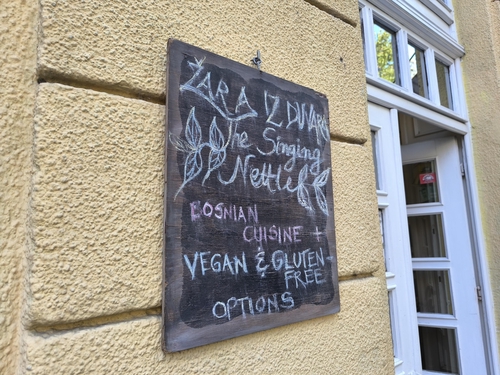 ŽARA IZ DUVARA
The Singing
Nettle
BOSNIAN
CUISINE +
VEGAN & GLUTEN-
FREE
OPTIONS